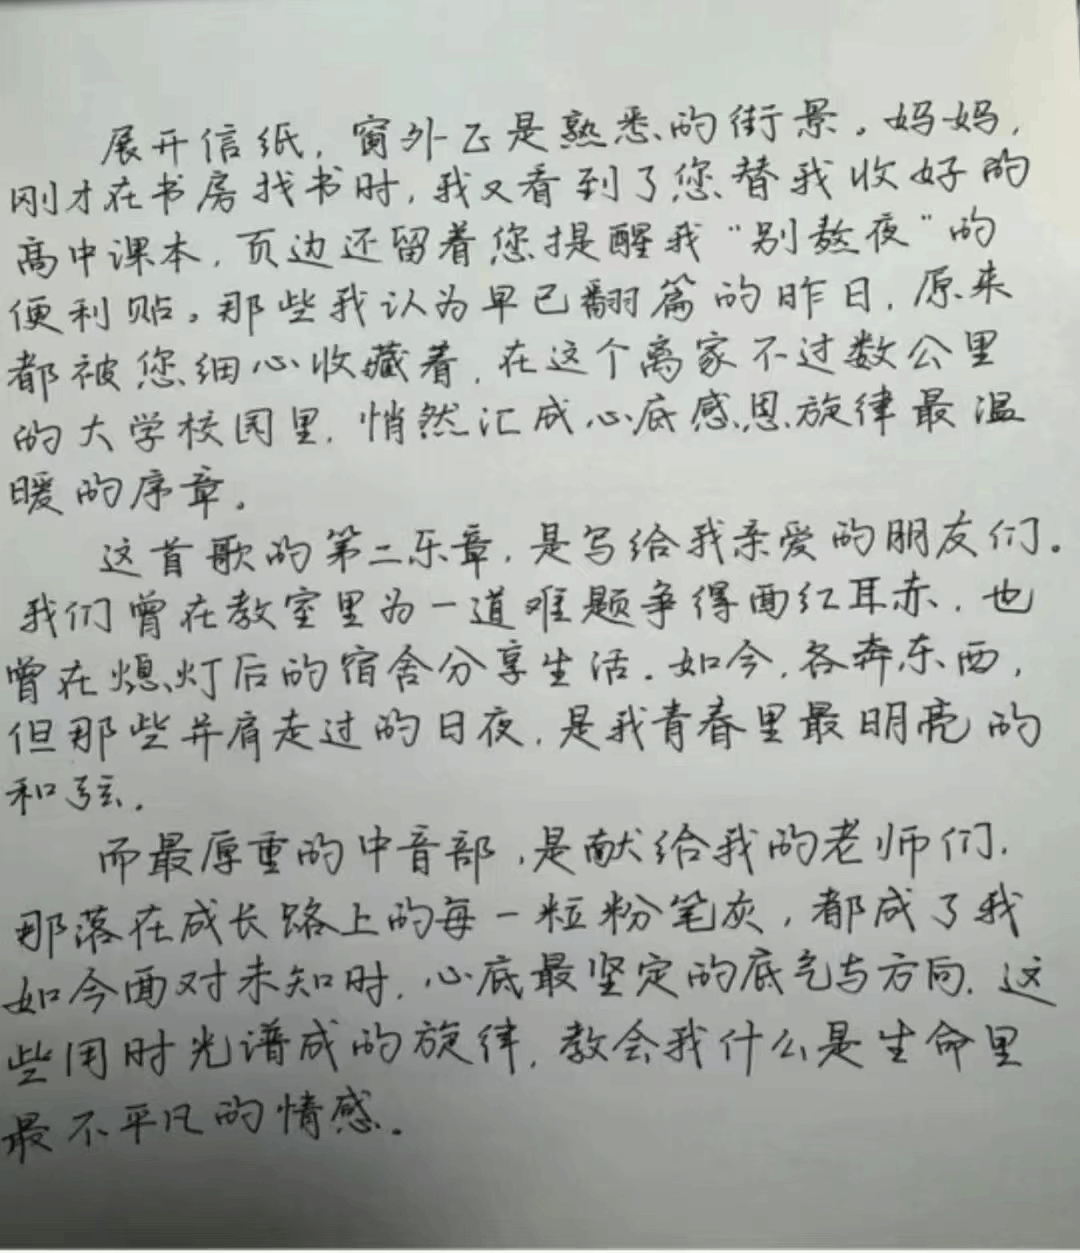 展开信纸，窗外正是熟悉的街景。妈妈，
刚才在书房找书时，我又看到了您替我收好的
高中课本，页边还留着您提醒我“别熬夜”的
便利贴。那些我认为早已翻篇的昨日，原来
都被您细心收藏着，在这个离家不过数公里
的大学校园里，悄然汇成心底感恩旋律最温
暖的序章。
这首歌的第二乐章，是写给我亲爱的朋友们。
我们曾在教室里为一道难题争得面红耳赤，也
曾在熄灯后的宿舍分享生活。如今，各奔东西，
但那些并肩走过的日夜，是我青春里最明亮的
和弦。
而最厚重的中音部，是献给我的老师们，
那落在成长路上的每一粒粉笔灰，都成了我
如今面对未知时，心底最坚定的底气与方向，这
些用时光谱成的旋律，教会我什么是生命里
最不平凡的情感。